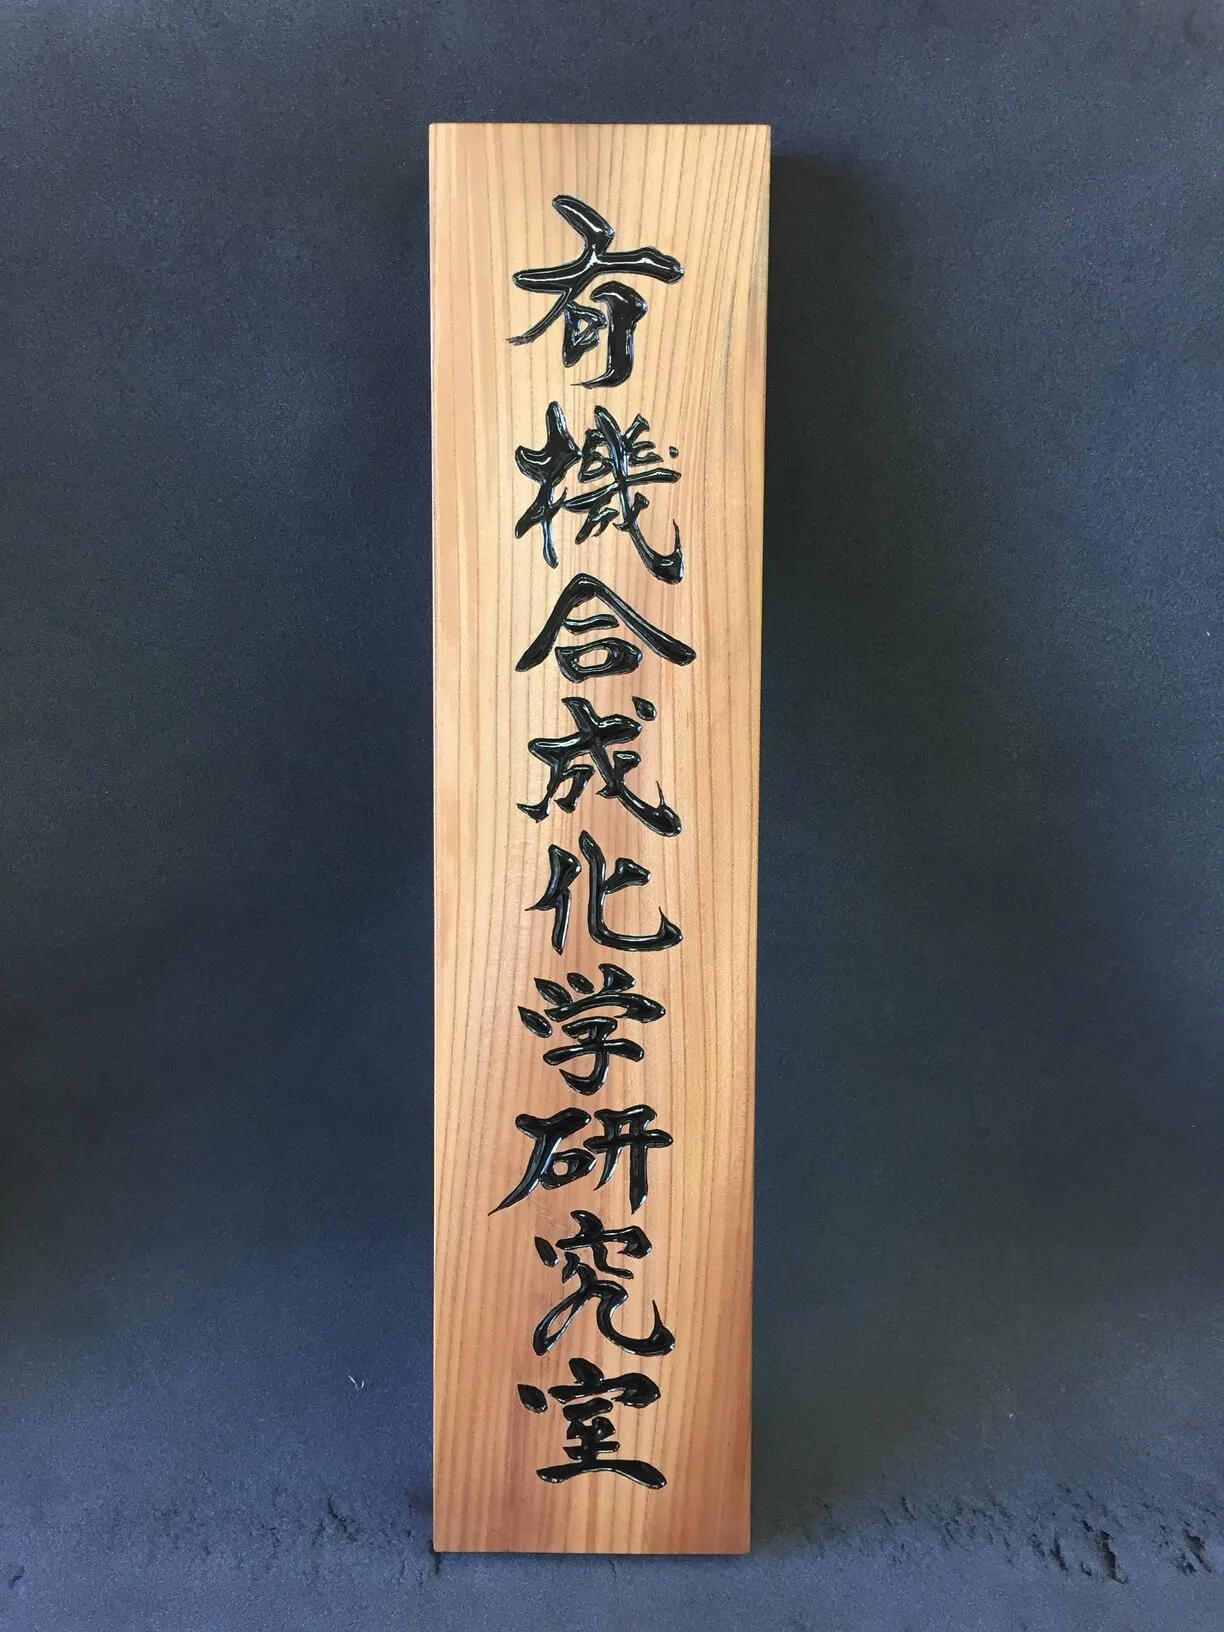 有機合成化学研究室